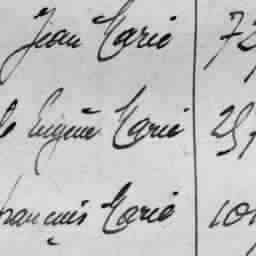 Jean Marie 72
Eugène Marie 25
François Marie 101